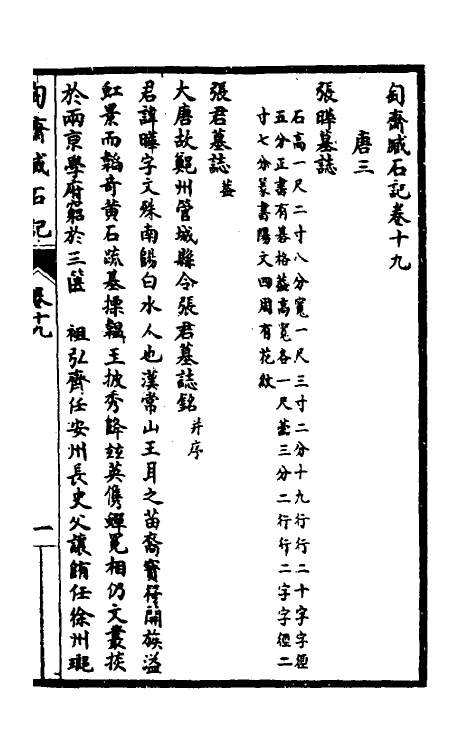 匋齋臧石記卷十九
唐三
張曄墓誌
石高一尺二寸八分寬一尺三寸二分十九行行二十字字徑
五分正書有碁格蓋高寬各一尺蓋三分二行行二字字徑二
寸七分篆書陽文四周有花紋
張君墓誌 蓋
大唐故鄭州管城縣令張君墓誌銘 并序
君諱曄字文殊南陽白水人也漢常山王耳之苗裔寶 開族滋
虹景而韜奇黃石疏基摽韞王披秀降 英儁蟬冕相仍文叢掞
於兩京學府 於三篋 祖弘齊任安州長史父讓 任徐州
匋齋臧石記 卷十九 一